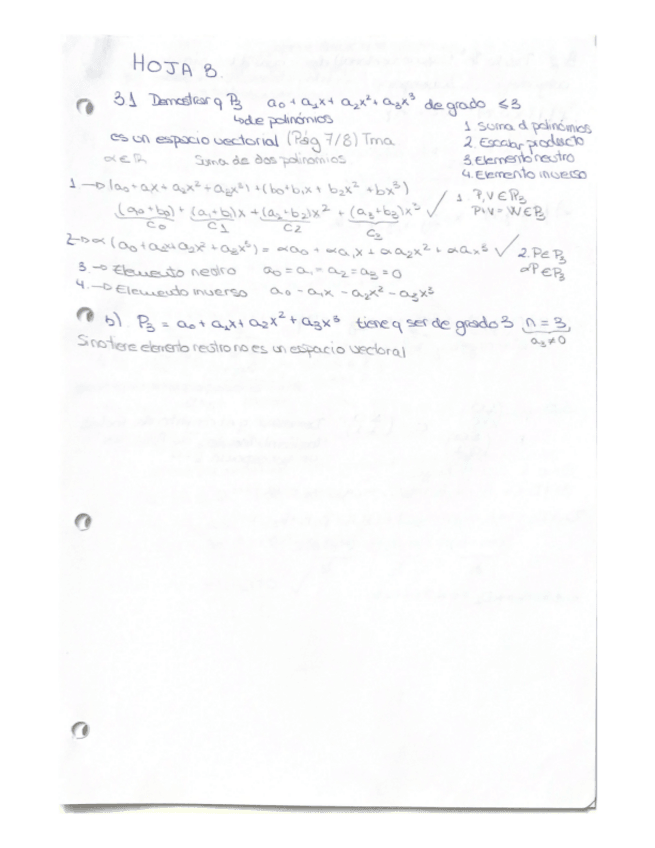 HOJA 3.
3.1 Demostrar q P₃ a₀ + a₁x + a₂x² + a₃x³ de grado ≤3
↳ de polinomios
1 Suma d polinómios
es un espacio vectorial (Pág 7/8) Tma
2. Escalar producto
α ∈ R Suma de dos polinomios
3. Elemento neutro
4. Elemento inverso
1 → (a₀ + ax + a₂x² + a₃x³) + (b₀ + b₁x + b₂x² + bx³)
1. P, V ∈ P₃
(a₀+b₀) + (a₁+b₁)x + (a₂+b₂)x² + (a₃+b₃)x³ ✓
P+V = W ∈ P₃
C₀ C1 C2 C₃
2 → α (a₀ + a₁x + a₂x² + a₃x³) = αa₀ + αa₁x + αa₂x² + αa₃x³ ✓
2. P ∈ P₃
αP ∈ P₃
3. → Elemento neutro a₀ = a₁ = a₂ = a₃ = 0
4. → Elemento inverso a₀ - a₁x - a₂x² - a₃x³
b) P₃ = a₀ + a₁x + a₂x² + a₃x³ tiene q ser de grado 3 n = 3,
a₃ ≠ 0
Si no tiene elemento neutro no es un espacio vectoral